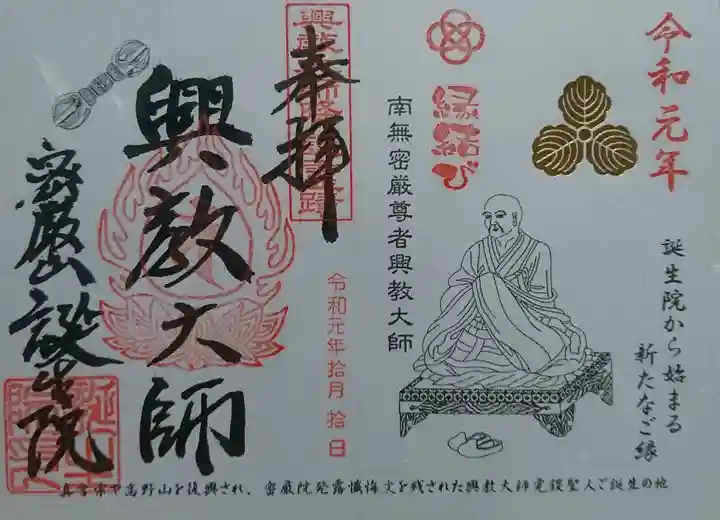 令和元年
縁結び
誕生院から始まる
新たなご縁
南無密厳尊者興教大師
奉拝
令和元年拾月拾日
興教大師
密厳山誕生院
真言宗や高野山を復興され、密厳院発露懺悔文を残された興教大師覚鑁聖人ご誕生の地